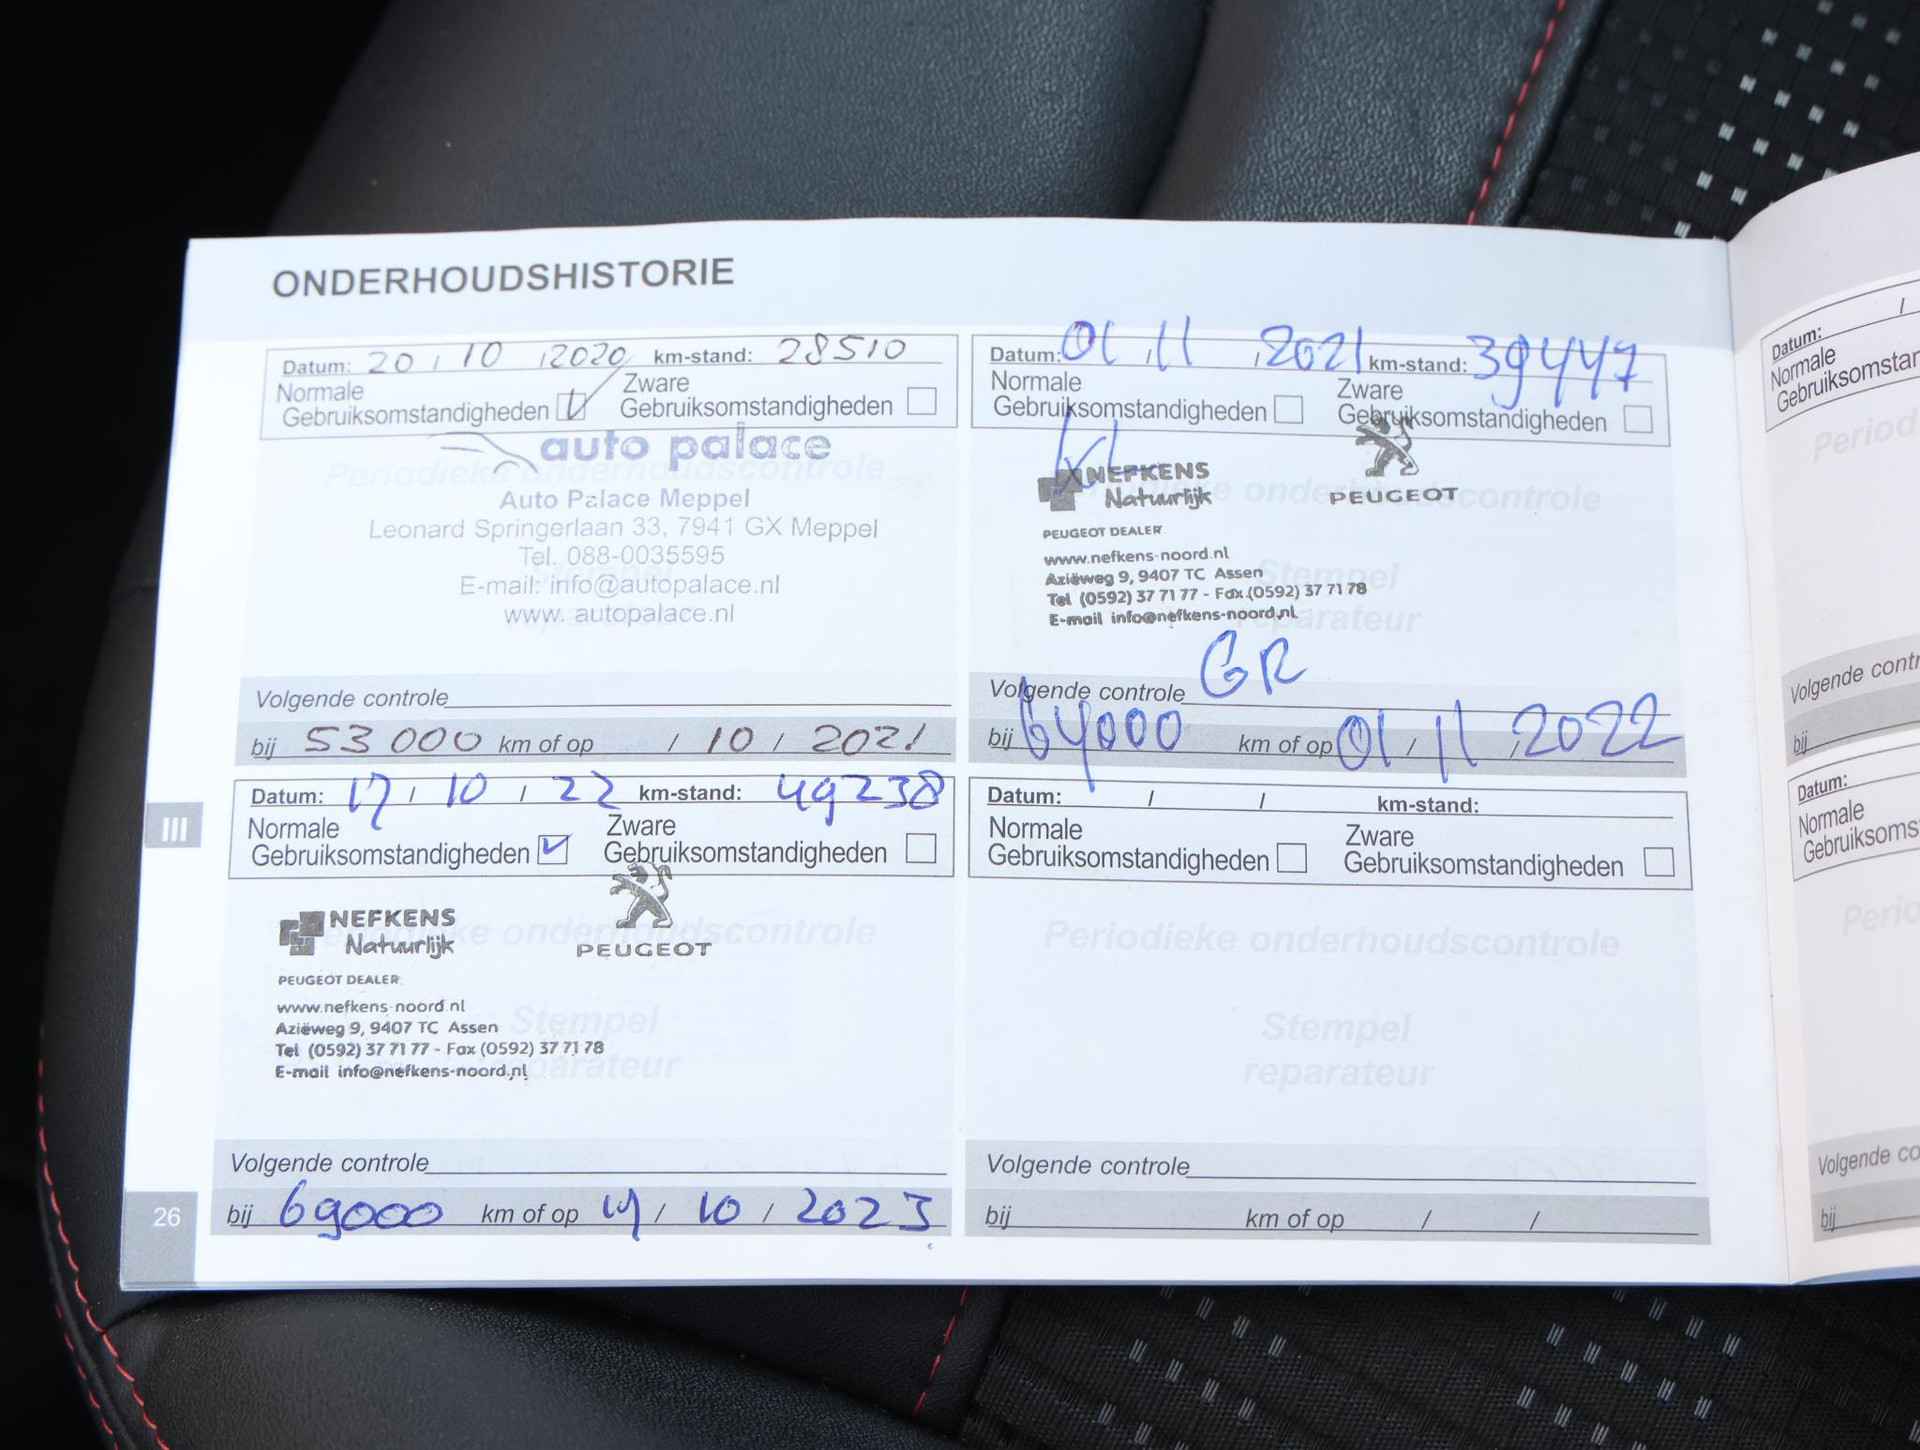 ONDERHOUDSHISTORIE
Datum: 20 / 10 / 2020 km-stand: 28510
Normale Zware
Gebruiksomstandigheden Gebruiksomstandigheden
auto palace
Periodieke onderhoudscontrole
Auto Palace Meppel
Leonard Springerlaan 33, 7941 GX Meppel
Tel. 088-0035595
E-mail: info@autopalace.nl
www.autopalace.nl
Volgende controle
bij 53 000 km of op / 10 / 2021
Datum: 01 / 11 / 2021 km-stand: 39447
Normale Zware
Gebruiksomstandigheden Gebruiksomstandigheden
NEFKENS
Natuurlijk
PEUGEOT
onderhoudscontrole
PEUGEOT DEALER
www.nefkens-noord.nl
Stempel
Aziëweg 9, 9407 TC Assen
Tel (0592) 37 71 77 - Fax (0592) 37 71 78
E-mail info@nefkens-noord.nl
reparateur
GR
Volgende controle
bij 64000 km of op 01 / 11 / 2022
Datum: 17 / 10 / 22 km-stand: 49238
Normale Zware
Gebruiksomstandigheden Gebruiksomstandigheden
NEFKENS
Natuurlijk
PEUGEOT
onderhoudscontrole
PEUGEOT DEALER
www.nefkens-noord.nl
Stempel
Aziëweg 9, 9407 TC Assen
Tel (0592) 37 71 77 - Fax (0592) 37 71 78
E-mail info@nefkens-noord.nl
reparateur
Volgende controle
bij 69000 km of op 17 / 10 / 2023
Datum: / / km-stand:
Normale Zware
Gebruiksomstandigheden Gebruiksomstandigheden
Periodieke onderhoudscontrole
Stempel
reparateur
Volgende controle
bij km of op / /
III
26
Datum: /
Normale
Gebruiksomstan
Period
Volgende contr
bij
Datum:
Normale
Gebruiksoms
Perio
Volgende co
bij